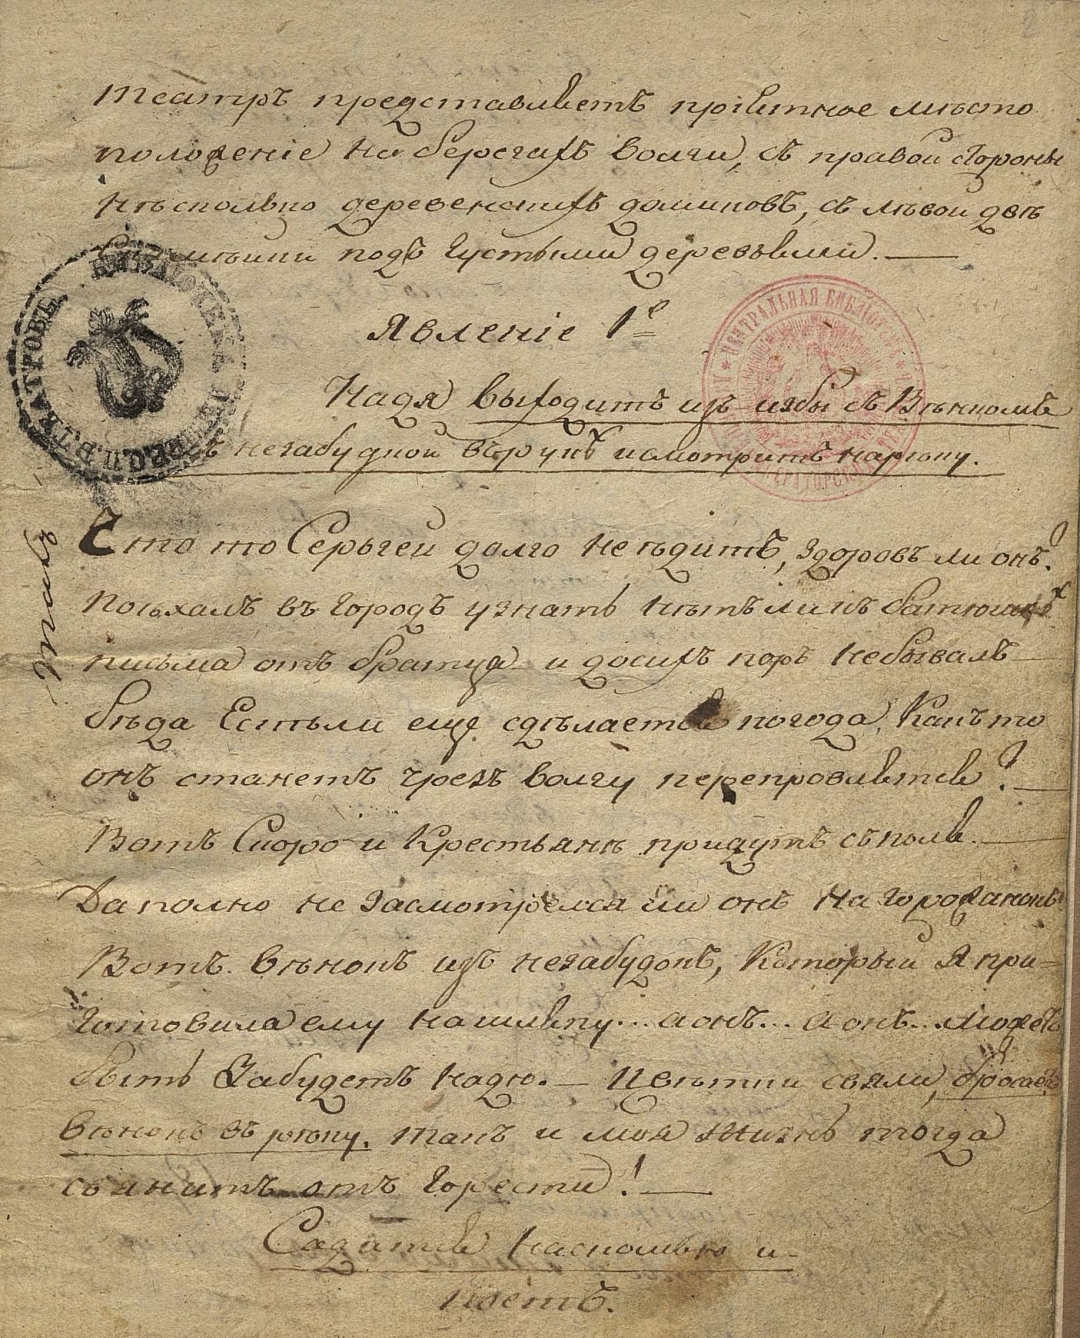 театръ представляетъ пріятное мѣсто
положеніе на берегахъ волги, съ правой стороны
нѣсколько деревенскихъ домиковъ, съ лѣвой двѣ
подъ густыми деревьями.—
Явленіе 1е
Надя выходитъ изъ избы съ Вѣнкомъ
незабудной въ рукѣ и смотритъ на рѣку.
Что то Серьгей долго неѣдитъ, здоровъ ли онъ?
Поѣхалъ въ городъ узнать нѣтъ ли къ батюшкѣ
письма отъ братца и досихъ поръ небывалъ
бѣда Естьли еще сдѣлается погода, Какъ то
онъ станетъ чрезъ волгу перепровлятся?—
Вотъ Скоро и Крестьянѣ придутъ съ поля.—
Да полно не Засмотрелся ли онъ на горожанокъ
Вотъ вѣнокъ изъ незабудокъ, Который Я при-
готовила ему на шляпу... а онъ... а онъ... може
быть Забудетъ надю.— Цвѣтки свяли, бросаетъ
вѣнокъ въ рѣку. такъ и моя жизнь тогда
свянитъ отъ горести!—
Садится наскомью и
поетъ.
Театръ
БИБЛІОТЕКА ИМПЕР. С.П.Б. ТЕАТРОВЪ
ЦЕНТРАЛЬНАЯ БИБЛІОТЕКА